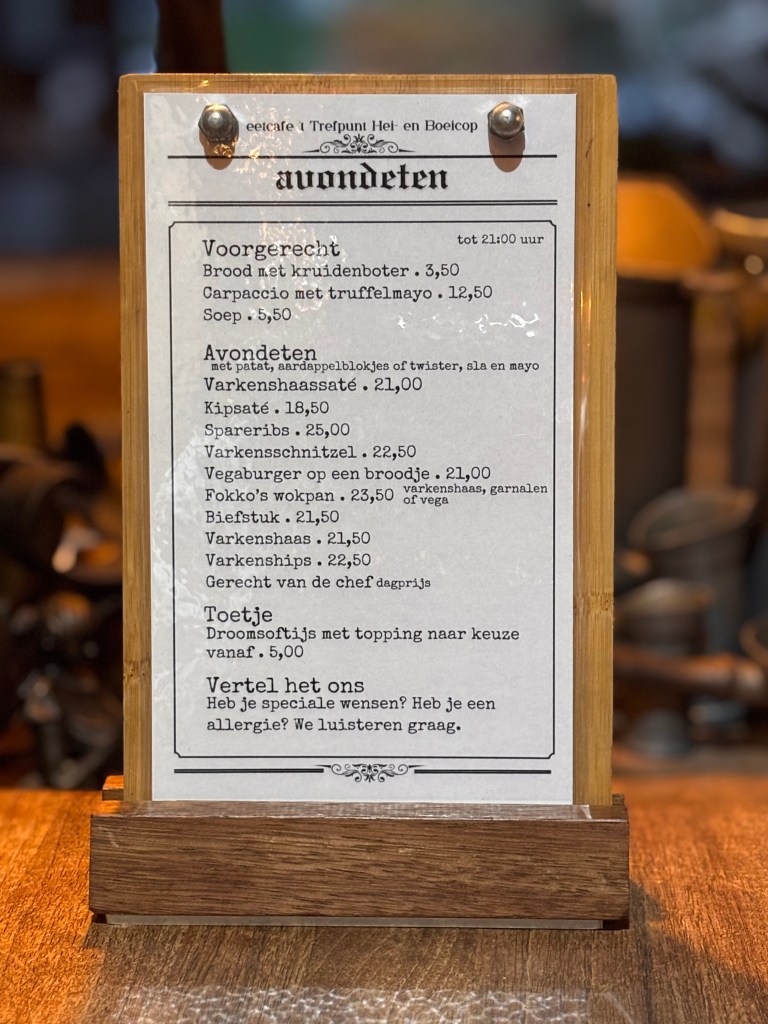 eetcafe 't Trefpunt Hei- en Boeicop
avondeten
tot 21:00 uur
Voorgerecht
Brood met kruidenboter . 3,50
Carpaccio met truffelmayo . 12,50
Soep . 5,50
Avondeten
met patat, aardappelblokjes of twister, sla en mayo
Varkenshaassaté . 21,00
Kipsaté . 18,50
Spareribs . 25,00
Varkensschnitzel . 22,50
Vegaburger op een broodje . 21,00
Fokko's wokpan . 23,50 varkenshaas, garnalen
of vega
Biefstuk . 21,50
Varkenshaas . 21,50
Varkenships . 22,50
Gerecht van de chef dagprijs
Toetje
Droomsoftijs met topping naar keuze
vanaf . 5,00
Vertel het ons
Heb je speciale wensen? Heb je een
allergie? We luisteren graag.